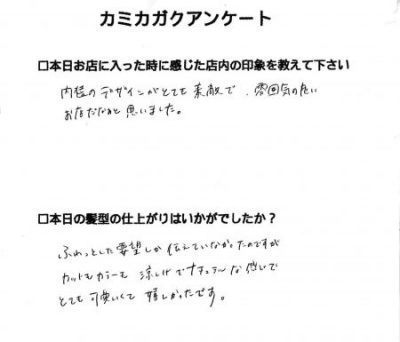 カミカガクアンケート
□本日お店に入った時に感じた店内の印象を教えて下さい
内装のデザインがとても素敵で、雰囲気の良い
お店だなぁと思いました。
□本日の髪型の仕上がりはいかがでしたか？
ふわっとした要望しか伝えていなかったのですが
カットもカラーも涼しげでナチュラルな感じで
とても可愛いくて嬉しかったです。